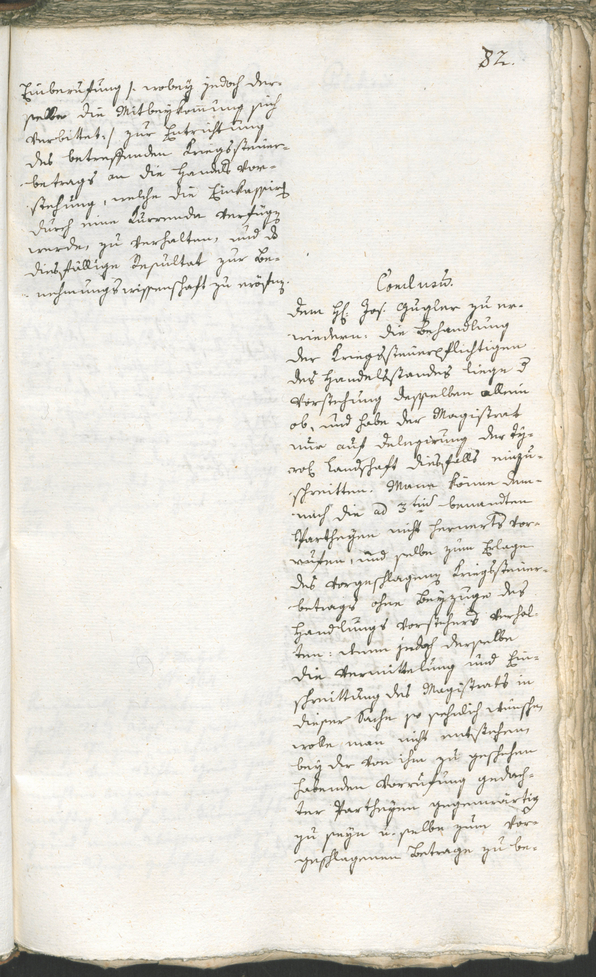 82.
Einberufung /: wobey jedoch der-
selbe die Mitbeykommung sich
verbittet :/ zur Entrichtung
des betreffenden Kriegssteuer-
betrags an die Handels Vor-
stehung, welche die Einkassirg
durch eine Kurrende verfügen
werde, zu verhalten, und d
diesfällige Resultat zur Be-
nehmungswissenschaft zu eröfnen.
Conclusum.
Dem H: Jos. Gugler zu er-
wiedern: die Behandlung
der Kriegssteuerpflichtigen
des Handelsstandes liege d
Vorstehung desselben allein
ob, und habe der Magistrat
nur auf Delegirung der Ty-
rol Landschaft diesfalls einzu-
schreitten. Mann könne dem-
nach die ad 3tium benannten
Partheyen nicht hervorts vor-
rufen, und selbe zum Erlage
des vorgeschlagenen Kriegssteuer-
betrags ohne Beyzuge des
Handlungs Vorstehers verhal-
ten: wenn jedoch derselbe
die Vermittelung und Ein-
schreittung des Magistrats in
dieser Sache so sehnlich wünschen
wolle, man nicht entstehen
bey der von ihm zu geschehen
habenden Vorrufung gedach-
ter Partheyen gegenwärtig
zu seyn u. selbe zum vor-
geschlagenen Betrage zu be-